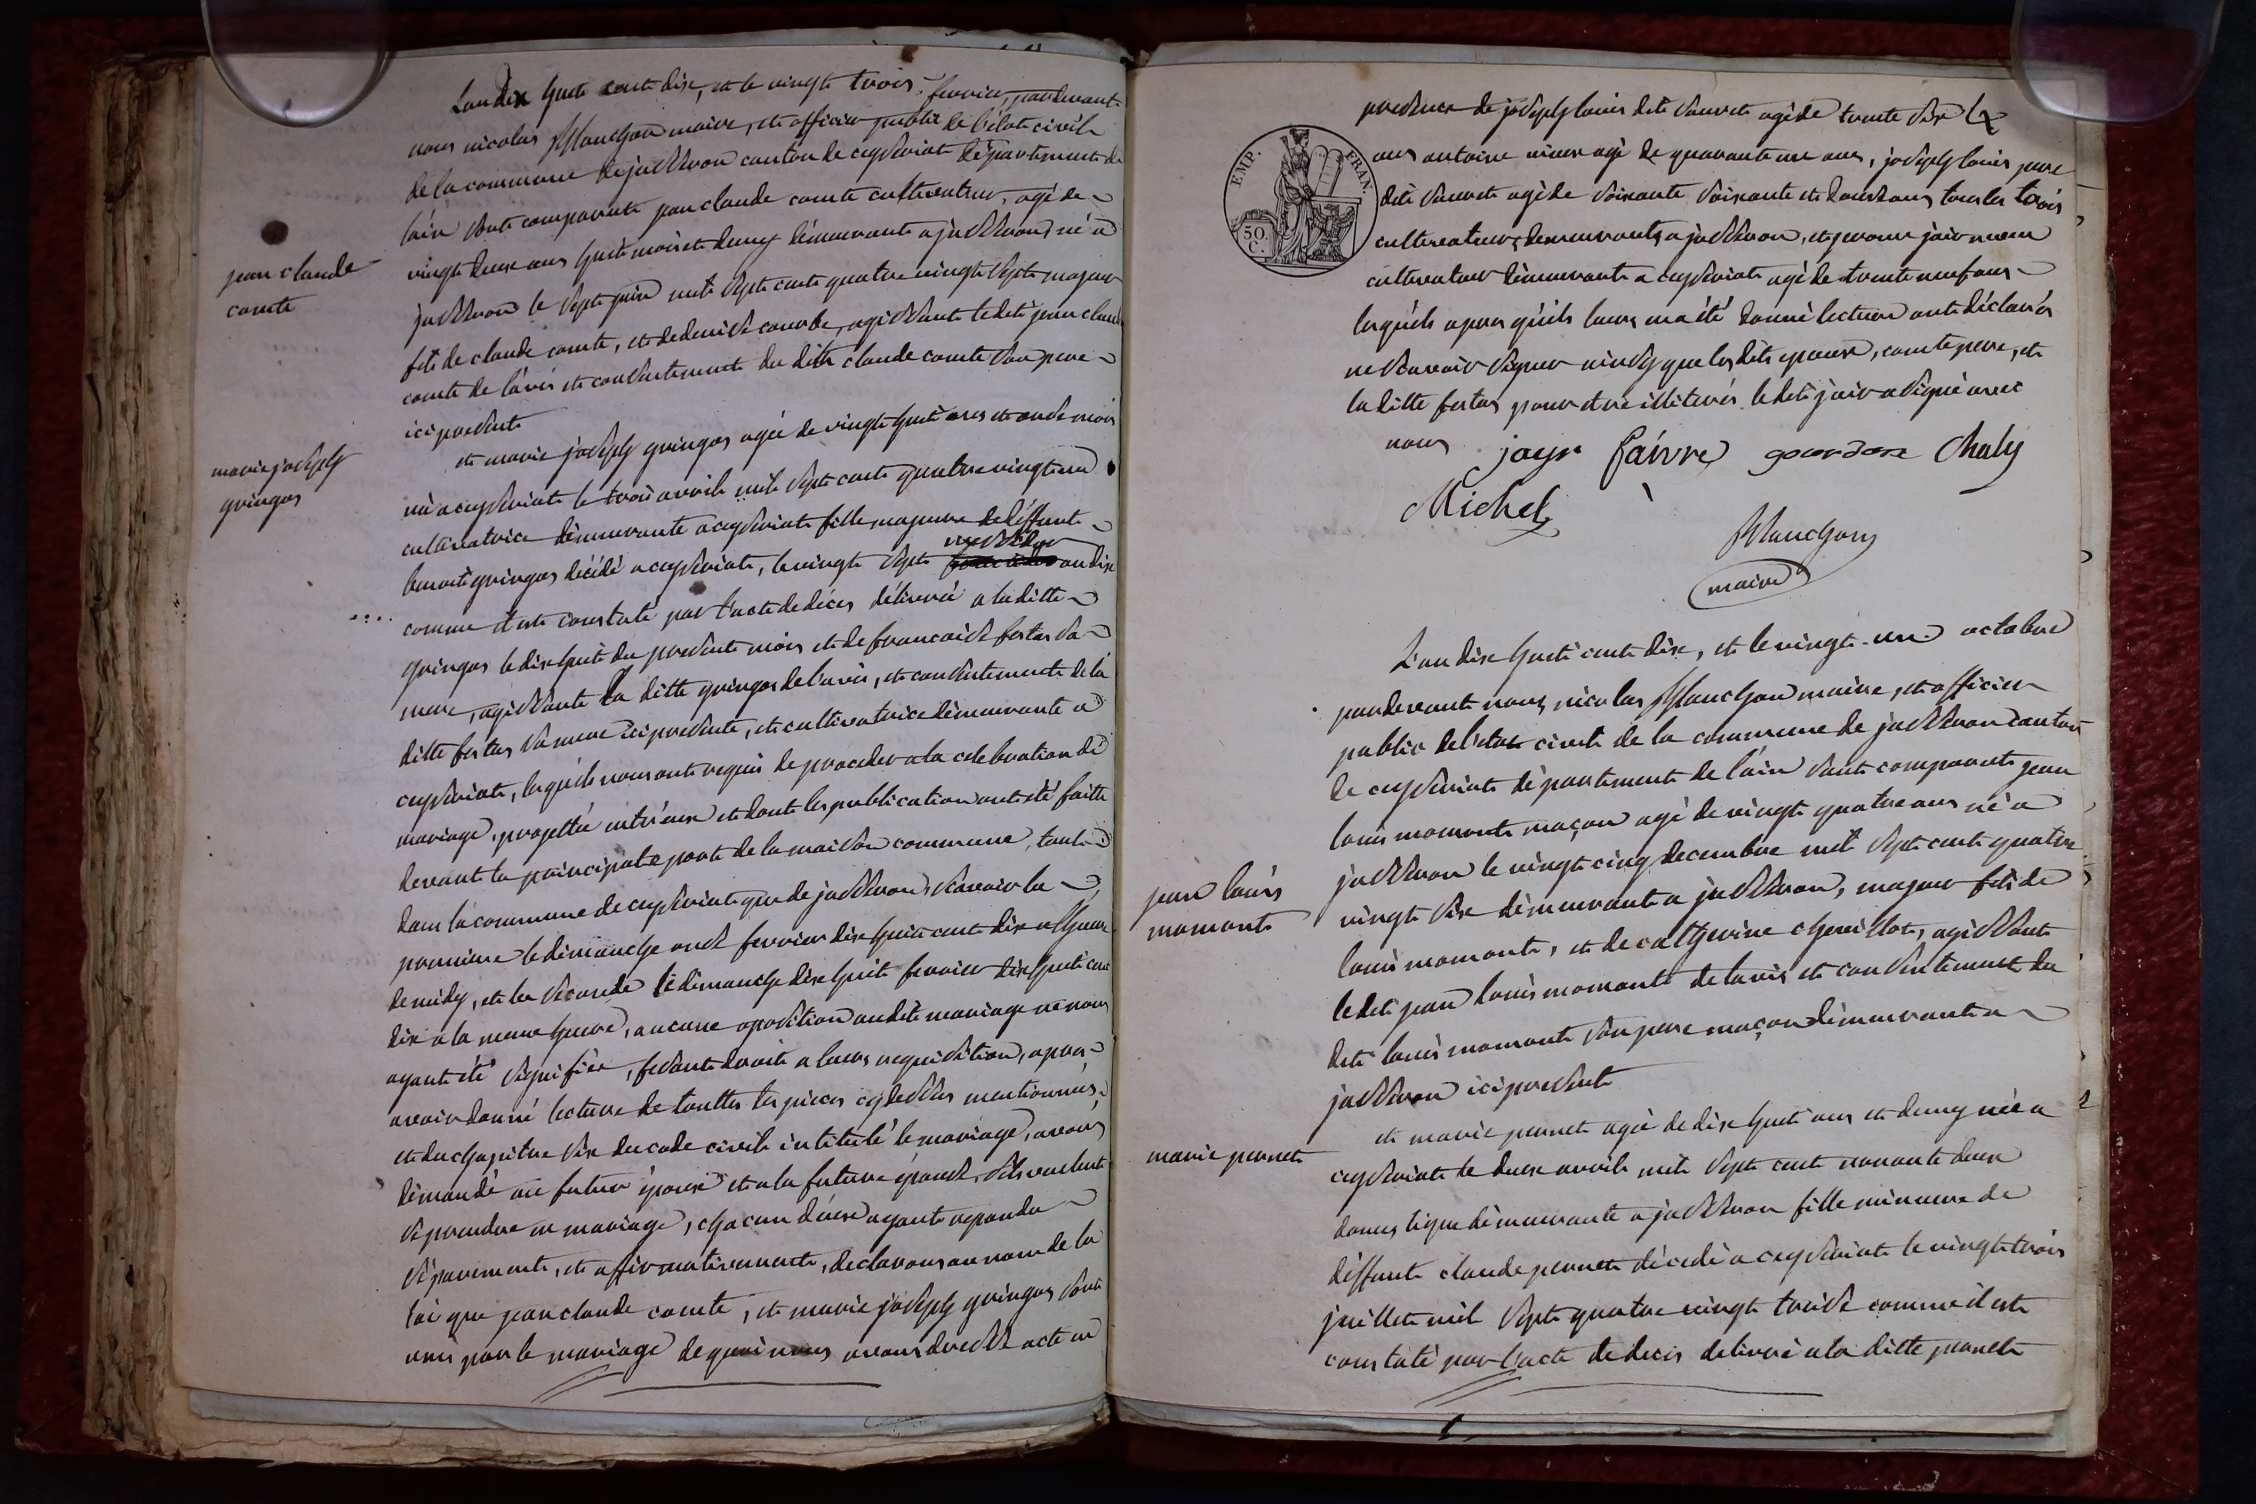 Lan dix huit cent dix, et le vingt trois fevrier, pardevant
nous nicolas Planchon maire, et officier public de l'état civil
de la commune de jasseron canton de ceyseriat département de
lain sont comparut jean claude comte cultivateur, agé de
vingt deux ans huit mois et demy démeurant a jasseron, né a
jasseron le sept juin mil sept cent quatre vingt sept majeur
fils de claude comte, et de denise courbe, agissant ledit jean claude
comte de lavis et consentement du dit claude comte son pere
ici present
jean claude
comte
et marie joseph gringos agée de vingt huit ans et onze mois
née a ceyseriat le trois avril mil sept cent quatre vingt un
cultivatrice démeurante a ceyseriat fille majeure de déffunt
benoit gringos décédé a ceyseriat, le vingt sept messidor an dix
comme il est constaté par l'acte de décès délivré a la ditte
gringos le dix huit du present mois et de francoise festas sa
mere, agissante la ditte gringos de lavis, et consentement de la
ditte festas sa mere ici presente, et cultivatrice démeurante a
ceyseriat, lesquels nous ont requis de proceder a la celebration du
mariage, projetté entr'eux et dont les publication ont été faitte
devant la principale porte de la maison commune, tant
dans la commune de ceyseriat que de jasseron, scavoir la
premiere le dimanche onze fevrier dix huit cent dix a lheure
de midy, et la seconde le dimanche dix huit fevrier dix huit cent
dix a la meme heure, aucune oposition audit mariage ne nous
ayant été signifiée, fesant droit a leurs requisition, apres
avoir donné lecture de touttes les pieces cy dessus mentionnés,
et du chapitre six du code civil intitulé le mariage, avons
démandé au futur époux et a la future épouse, sils veulent
se prendre en mariage, chacun d'eux ayant repondu
séparement, et affirmativement, declarons au nom de la
loi que jean claude comte, et marie joseph gringos sont
unis par le mariage de quoi nous avons dressé acte en
marie joseph
gringos
presence de joseph louis dit sauvet agé de trente six
ans antoine agé de quarante un ans, joseph louis pere
dit sauvet agé de soixante soixante et douze ans tous les trois
cultivateurs demeurants a jasseron, et jair
cultivateur démeurant a ceyseriat agé de trente neuf ans
lesquels apres qu'ils leurs en a été donné lecture ont déclarés
ne scavoir signer ainsy que les dits epoux, comte pere, et
la ditte festas pour etre illiterés le dit jair a signé avec
nous
EMP. FRAN.
50.
C.
jayr faivre gourdon Chaly
Michel
Planchon
maire
L'an dix huit cent dix, et le vingt-un octobre
pardevant nous nicolas Planchon maire, et officier
public de l'etat civil de la commune de jasseron canton
de ceyseriat département de l'ain sont comparut jean
louis momont maçon agé de vingt quatre ans né a
jasseron le vingt cinq decembre mil sept cent quatre
vingt six démeurant a jasseron, majeur fils de
louis momont, et de catherine chevillot, agissant
le dit jean louis momont de lavis et consentement du
dit louis momont son pere maçon démeurant a
jasseron ici present
jean louis
momont
et marie pernet agée de dix huit ans et demy née a
ceyseriat le deux avril mil sept cent nonante deux
domestique démeurante a jasseron fille mineure de
déffunt claude pernet décédé a ceyseriat le vingt trois
juillet mil sept quatre vingt treize comme il est
constaté par l'acte de deces delivré a la ditte pernet
marie pernet